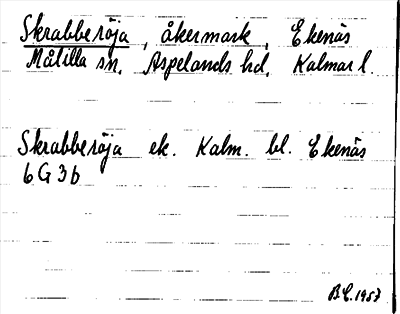 Skrabberöja, åkermark, Ekenäs
Målilla sn. Aspelands hd. Kalmar l.
Skrabberöja ek. Kalm. bl. Ekenäs
6G3b
B.C. 1953